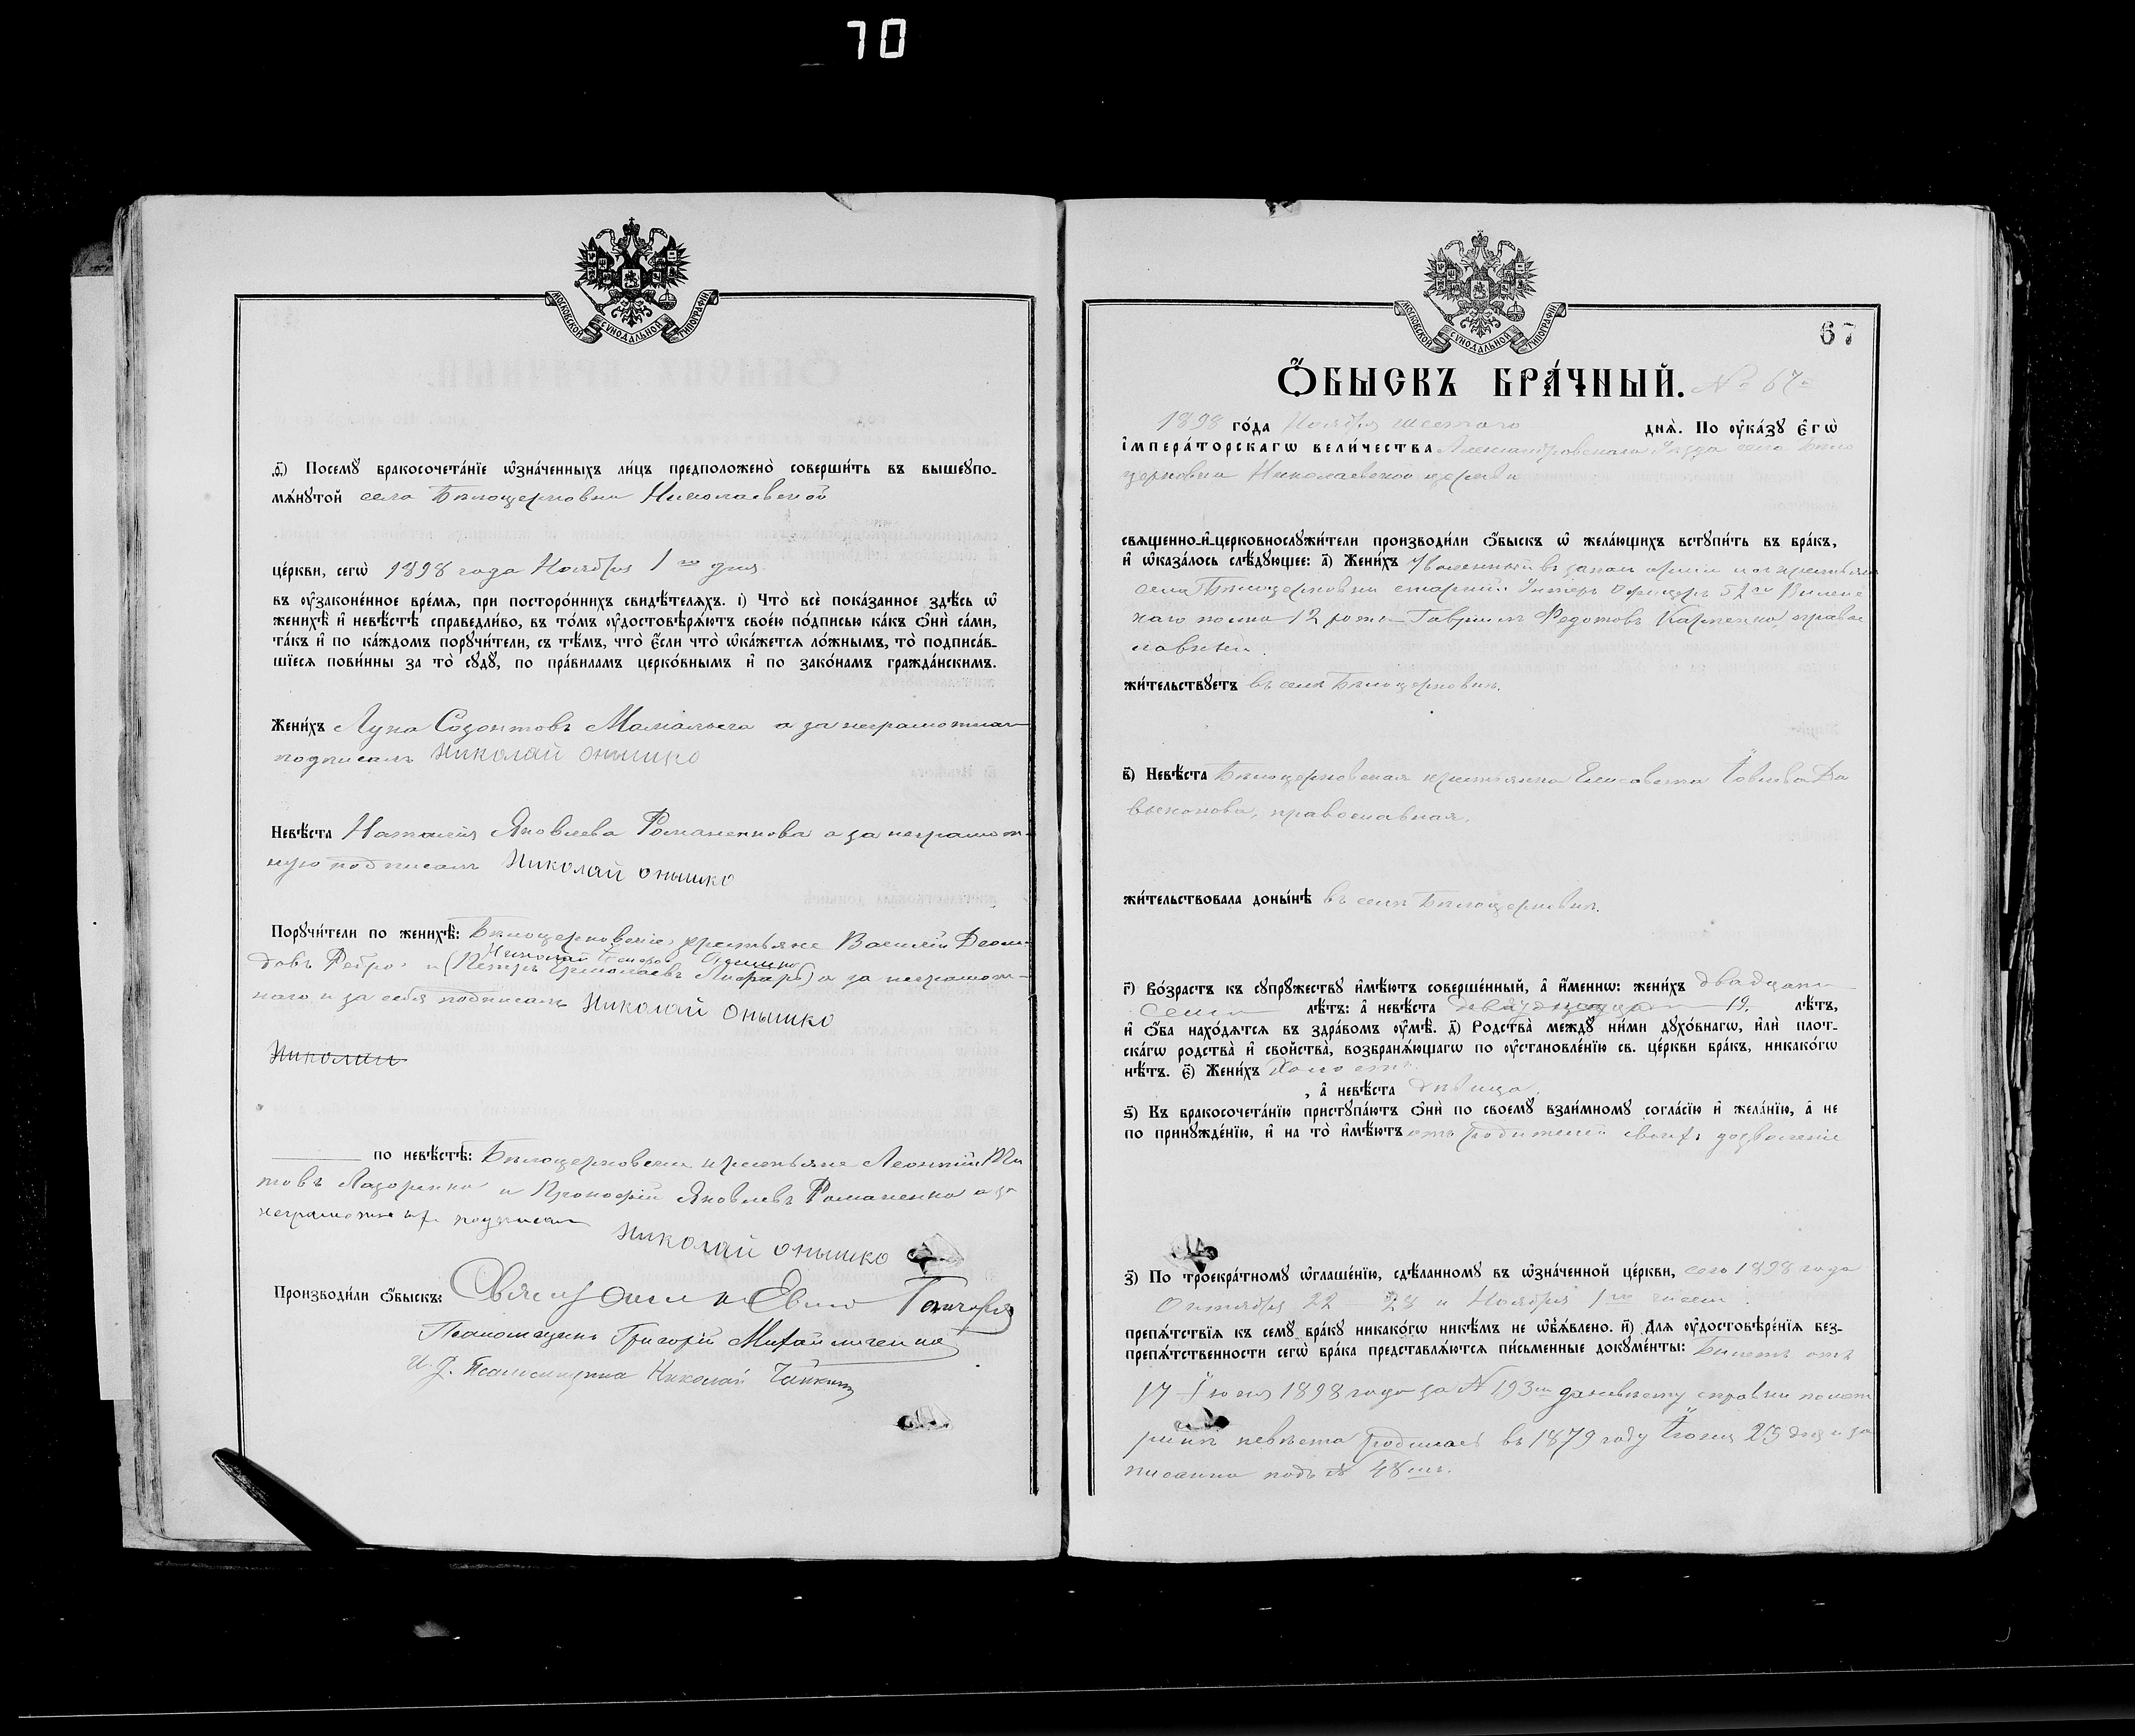 70
МОСКОВСКОЙ СУНОДАЛЬНОЙ ТИПОГРАФІИ
ѳ҃) Посемꙋ̀ бракосочета́нїе ѡ҆зна́ченныхъ ли́цъ предположено̀ соверши́ть въ вышеупо-
мѧ́нꙋтой села Бѣлоцерковки Николаевской
це́ркви, сегѡ̀ 1898 года Ноября 1го дня
въ ᲂу҆законе́нное вре́мѧ, при посторо́ннихъ свидѣ́телѧхъ. і҃) Что̀ всѐ пока́занное здѣ́сь ѡ҆
женихѣ̀ и҆ невѣ́стѣ справедли́во, въ то́мъ ᲂу҆достовѣрѧ́ютъ свое́ю по́дписью ка́къ ѻ҆нѝ са́ми,
та́къ и҆ по ка́ждомъ порꙋчи́тели, съ тѣ́мъ, что̀ є҆́сли что̀ ѡ҆ка́жетсѧ ло́жнымъ, то̀ подписа́в-
шїесѧ пови́нны за то̀ сꙋдꙋ̀, по пра́виламъ церко́внымъ и҆ по зако́намъ гражда́нскимъ.
Жени́хъ Лука Созонтовъ Мамалыга а за неграмотнаго
подписалъ Николай Онышко
Невѣ́ста Наталія Яковлева Романенкова а за неграмот-
ную подписалъ Николай Онышко
Порꙋчи́тели по женихѣ̀: Бѣлоцерковскіе крестьяне Василій
Николай Онышко
довъ Ребро и (Петръ Ермолаевъ) а за неграмот-
наго и за себя подписалъ Николай Онышко
Николай
по невѣ́стѣ: Бѣлоцерковскіе крестьяне Леонтій Ти
товъ Лазоренко и Прокофій Яковлевъ Романенко а за
неграмотныхъ подписалъ
Николай Онышко
Производи́ли ѻ҆́быскъ: Священникъ
Псаломщикъ Григорій Михайличенко
И. д. Псаломщика Николай
МОСКОВСКОЙ СУНОДАЛЬНОЙ ТИПОГРАФІИ
67
Ѻ҆́БЫСКЪ БРА́ЧНЫЙ. № 67й
1898 го́да Ноября шестаго днѧ̀. По ᲂу҆ка́зꙋ є҆гѡ̀
и҆мпера́торскагѡ вели́чества Александровскаго уѣзда села Бѣло
церковки Николаевской церкви
свѧщенно-и҆-церковнослꙋжи́тели производи́ли ѻ҆́быскъ ѡ҆ жела́ющихъ встꙋпи́ть въ бра́къ,
и҆ ѡ҆каза́лось слѣ́дꙋющее: а҃) Жени́хъ Уволенный въ запасъ арміи изъ крестьянъ
села Бѣлоцерковки старшій Унтеръ Офицеръ 52го Виленс
каго полка 12 роты Гавріилъ Федотовъ Карпенко, правос
лавный.
жи́тельствꙋетъ въ селѣ Бѣлоцерковкѣ.
в҃) Невѣ́ста Бѣлоцерковская крестьянка Елисавета Іовлева
православная.
жи́тельствовала доны́нѣ въ селѣ Бѣлоцерковкѣ.
г҃) Во́зрастъ къ сꙋпрꙋ́жествꙋ и҆мѣ́ютъ соверше́нный, а҆ и҆́меннѡ: жени́хъ двадцати
семи лѣ́тъ: а҆ невѣ́ста 19. лѣ́тъ,
и҆ ѻ҆́ба нахо́дѧтсѧ въ здра́вомъ ᲂу҆мѣ̀. д҃) Родства̀ междꙋ̀ ни́ми дꙋхо́внагѡ, и҆лѝ плот-
ска́гѡ родства̀ и҆ сво́йства̀, возбранѧ́ющагѡ по ᲂу҆становле́нїю св. це́ркви бра́къ, никако́гѡ
нѣ́тъ. є҃) Жени́хъ Холостъ
, а҆ невѣ́ста дѣвица.
ѕ҃) Къ бракосочета́нїю пристꙋпа́ютъ ѻ҆нѝ по своемꙋ̀ взаи́мномꙋ согла́сїю и҆ жела́нїю, а҆ не
по принꙋжде́нїю, и҆ на то̀ и҆мѣ́ютъ отъ родителей своихъ дозволеніе
з҃) По троекра́тномꙋ ѡ҆глаше́нїю, сдѣ́ланномꙋ въ ѡ҆зна́ченной це́ркви, сего 1898 года
Октября 22 – 28 и Ноября 1го чиселъ.
препѧ́тствїѧ къ семꙋ̀ бра́кꙋ никако́гѡ никѣ́мъ не ѡ҆б̾ѧ́влено. и҃) Длѧ ᲂу҆достовѣре́нїѧ без-
препѧ́тственности сегѡ̀ бра́ка представлѧ́ютсѧ пи́сьменные докꙋме́нты: Билетъ отъ
17 Іюня 1898 года за № 193мъ справки по мет
рикѣ невѣста родилась въ 1879 году Іюня 25 дня и за
писанна подъ № 48мъ.